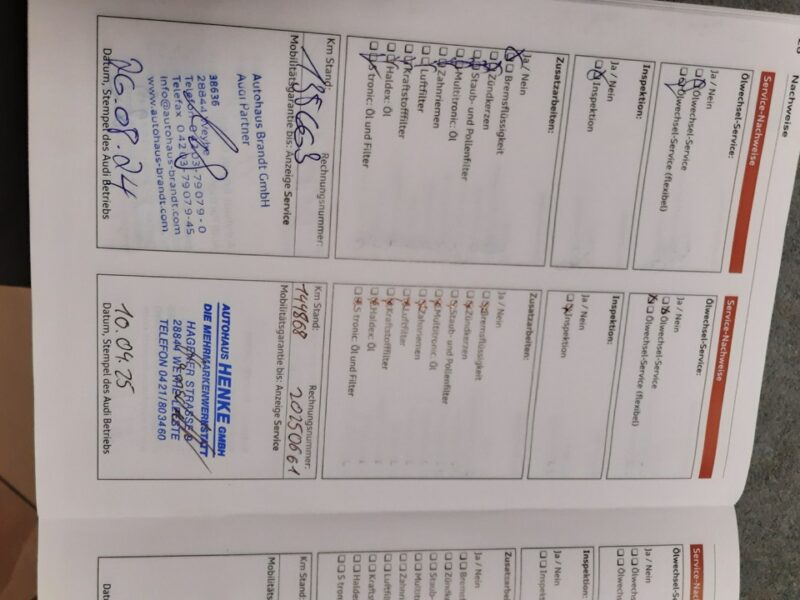 Nachweise
Service-Nachweise
Ölwechsel-Service:
Ja / Nein
Ölwechsel-Service
Ölwechsel-Service (flexibel)
Inspektion:
Ja / Nein
Inspektion
Zusatzarbeiten:
Ja / Nein
Bremsflüssigkeit
Zündkerzen
Staub- und Pollenfilter
Multitronic: Öl
Zahnriemen
Luftfilter
Kraftstofffilter
Haldex: Öl
S tronic: Öl und Filter
Km Stand: Rechnungsnummer:
Mobilitätsgarantie bis: Anzeige Service
Autohaus Brandt GmbH
Audi Partner
38636
28844 Weyhe
Telefon 04203-79079-0
Telefax 04203-79079-45
info@autohaus-brandt.com
www.autohaus-brandt.com
26.08.24
Datum, Stempel des Audi Betriebs
Service-Nachweise
Ölwechsel-Service:
Ja / Nein
Ölwechsel-Service
Ölwechsel-Service (flexibel)
Inspektion:
Ja / Nein
Inspektion
Zusatzarbeiten:
Ja / Nein
Bremsflüssigkeit
Zündkerzen
Staub- und Pollenfilter
Multitronic: Öl
Zahnriemen
Luftfilter
Kraftstofffilter
Haldex: Öl
S tronic: Öl und Filter
Km Stand: Rechnungsnummer:
141868 20250661
Mobilitätsgarantie bis: Anzeige Service
AUTOHAUS HENKE GMBH
DIE MEHRMARKENWERKSTATT
HAGENER STRASSE
28844 WEYHE
TELEFON 0421/803460
10.09.25
Datum, Stempel des Audi Betriebs
Service-Nach
Ölwechsel-Service:
Ja / Nein
Ölwechsel-Se
Ölwechse
Inspektion:
Ja / Nein
Inspekti
Zusatzarbe
Ja / Nein
Brem
Zünd
Staub-
Multi
Zahnri
Luftfi
Krafts
Haldex
S tron
Km Stand:
Mobilitäts
Datu